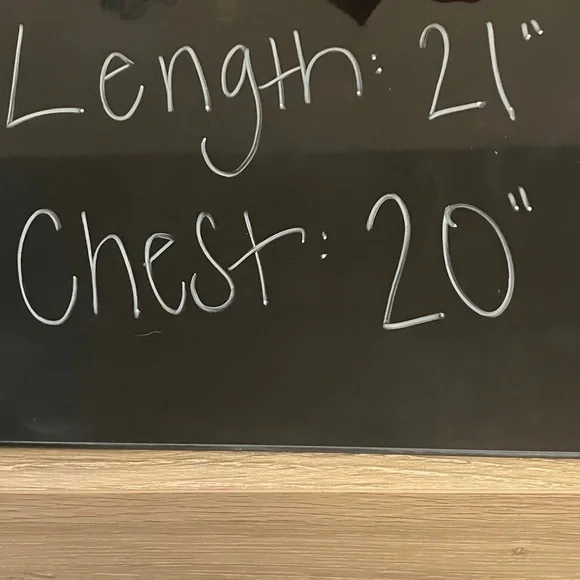 Length: 21"
Chest: 20"